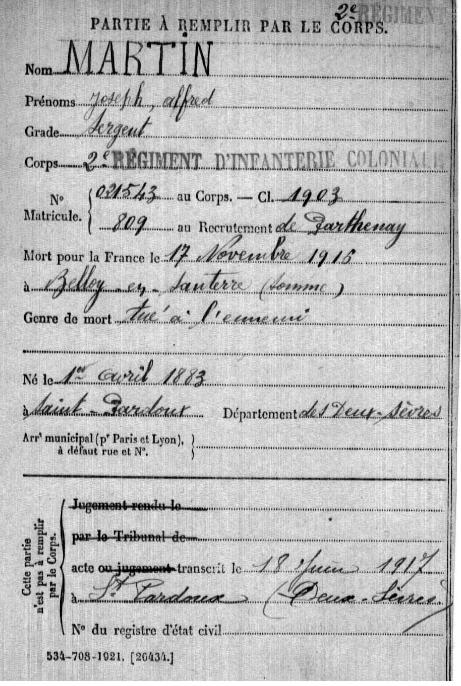 2e RÉGIMENT
PARTIE À REMPLIR PAR LE CORPS.
Nom MARTIN
Prénoms Joseph, alfred
Grade Sergent
Corps 2e RÉGIMENT D'INFANTERIE COLONIALE
N° Matricule. { 021543 au Corps. — Cl. 1903
809 au Recrutement de Parthenay
Mort pour la France le 17 Novembre 1916
à Belloy en Santerre (Somme)
Genre de mort tué à l'ennemi
Né le 1er avril 1883
à Saint-Pardoux Département des Deux-Sèvres
Arrt municipal (pr Paris et Lyon),
à défaut rue et N°.
Cette partie
n'est pas à remplir
par le Corps.
Jugement rendu le
par le Tribunal de
acte ou jugement transcrit le 18 Juin 1917
à St Pardoux (Deux-Sèvres)
N° du registre d'état civil
534-708-1921. [26434.]